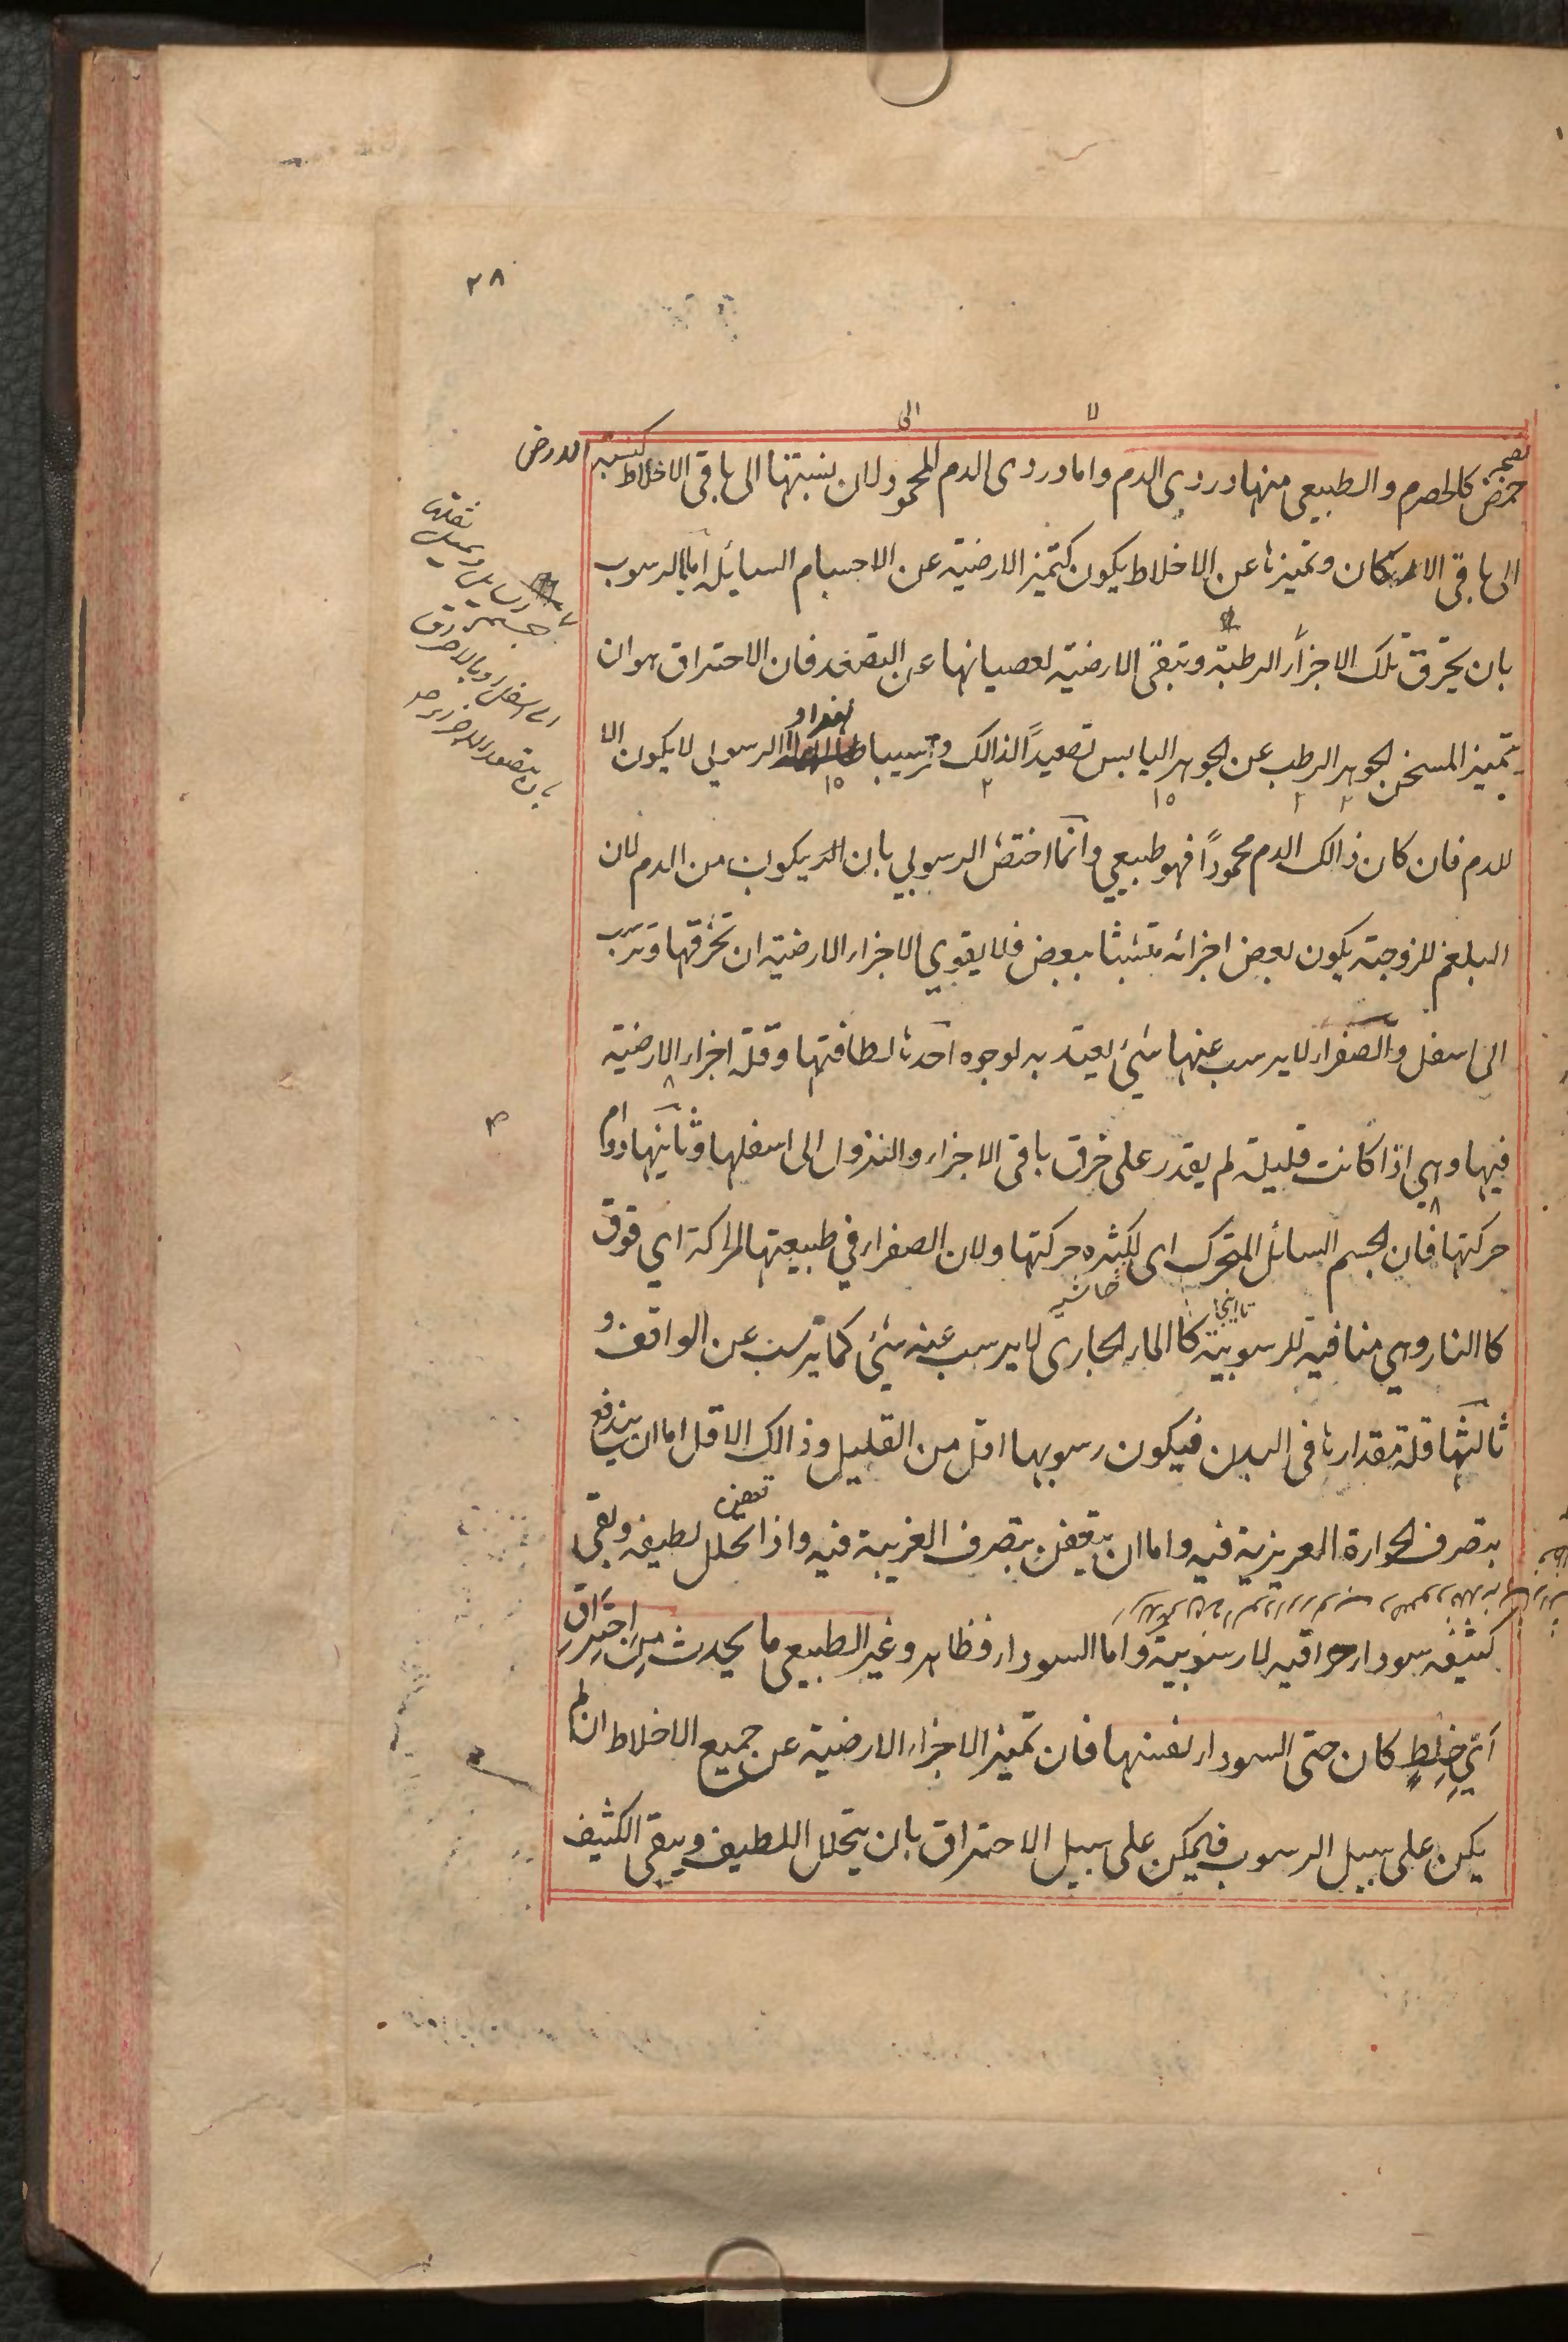 ٢٨
لا الى
حمض كالحصرم والطبيعى منها دردى الدم واما دردى الدم المحمود لان نسبتها الى باقى الاخلاط كنسبة الارض
الى باقى الاركان وتميزها عن الاخلاط يكون كتميز الارضية عن الاجسام السائلة اما بالرسوب
بان يحترق تلك الاجزاء الرطبة وتبقى الارضية لعصيانها عن التصعد فان الاحتراق هو ان
يتميز المسخن الجوهر الرطب عن الجوهر اليابس تصعيداً لذالك وترسيبا الرسوبى لا يكون الا
للدم فان كان ذالك الدم محموداً فهو طبيعي وانما اختص الرسوبي بان يكون من الدم لان
البلغم للزوجته يكون بعض اجزائه متشبثا ببعض فلا يقوي الاجزاء الارضية ان تخرقها وترسب
الى اسفل والصفراء لا يرسب عنها شئ يعتد به لوجوه احدها لطافتها وقلة اجزاء الارضية
فيها وهي اذا كانت قليلة لم يقدر على خرق باقى الاجزاء والنزول الى اسفلها وثانيها دوام
حركتها فان الجسم السائل المتحرك اى لكثرة حركتها ولان الصفراء في طبيعتها الحركة اي فوق
كا النار وهي منافية للرسوبية كا الماء الجارى لا يرسب عنه شئ كما ترسب عن الواقف و
ثالثها قلة مقدارها فى البدن فيكون رسوبها اقل من القليل وذالك الاقل اما ان يندفع
بتصرف الحرارة الغريزية فيه واما ان يتعفن بتصرف الغريبة فيه واذا تحلل لطيفه وبقي
كثيفه سوداء حراقيه لا رسوبية واما السوداء فظاهر وغير الطبيعى ما يحدث من احتراق
اَيِّ خِلطٍ كان حتى السوداء نفسها فان تميز الاجزاء الارضية عن جميع الاخلاط ان لم
يكن على سبيل الرسوب فيمكن على سبيل الاحتراق بان يتحلل اللطيف ويبقى الكثيف